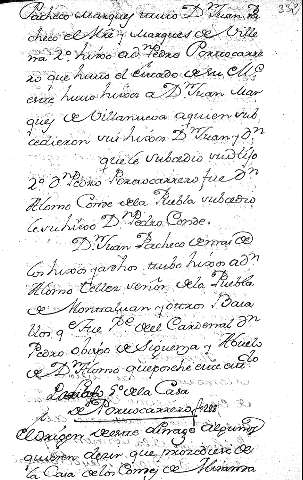 Pacheco Marques tuuo Dn Juan Pa
checo el Mre y Marques de Ville
na 2o hixo a Dn Pedro Portocarre
ro que huuo el estado de su Me
este huuo hixos a D Juan Mar
ques de Villanueva a quien sub
cedieron sus hixos Dn Juan y Dn
que le subcedio su hijo
2o Dn Pedro Portocarrero fue Dn
Alonso Conde de la Puebla subcedio
le su hixo Dn Pedro Conde.
Dn Juan Pacheco demas de
los hixos y a dhos tubo hixo a Dn
Alonso Tellez señor de la Puebla
de Montaluan y otros Basta
llos qe fue Pe del Cardenal Dn
Pedro obispo de Siguenza y Abuelo
de Dn Alonso que por che
de la Casa
de Portocarrero fo 288
el origen de este linage algunos
quieren dezir que procediese de
la Casa de los Condes de Miranda